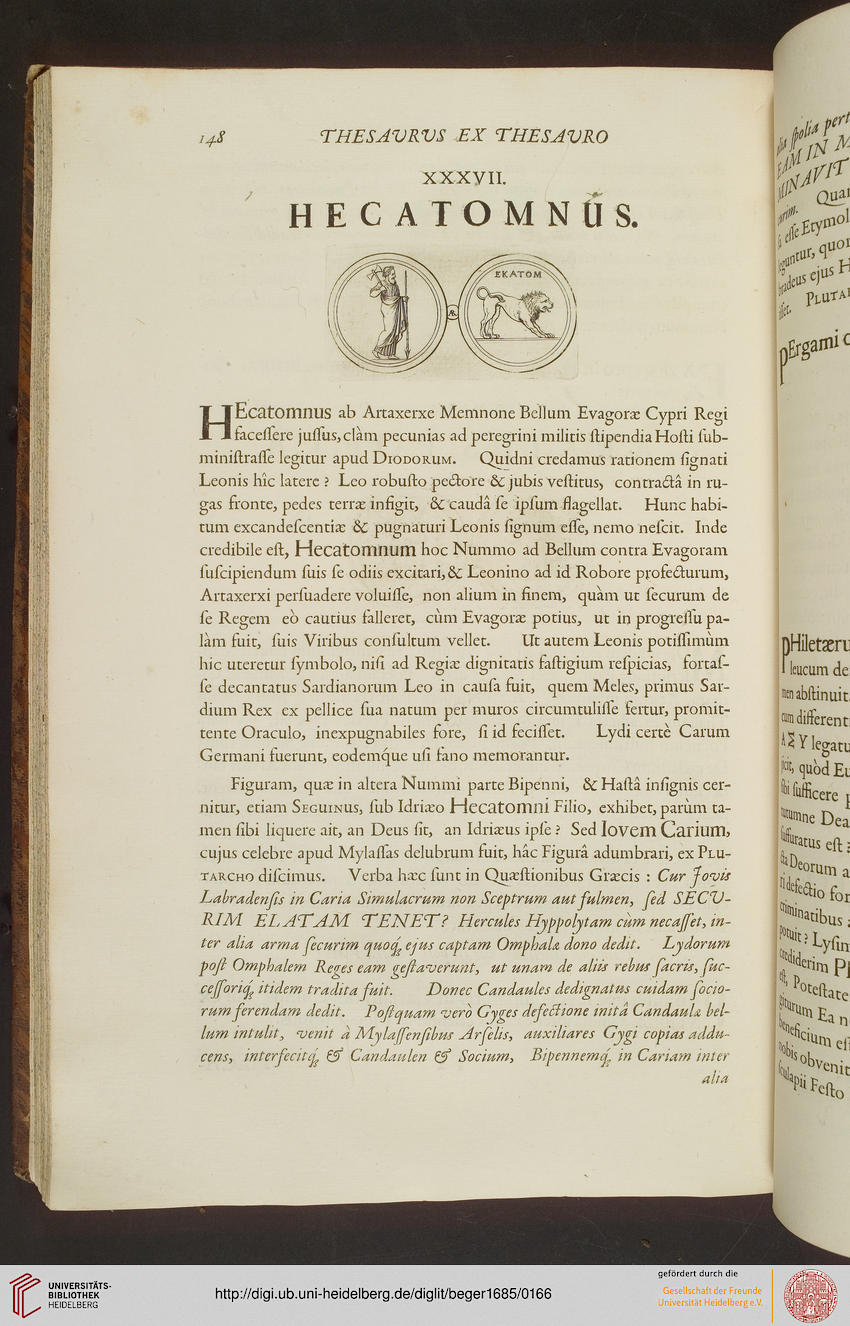 148 THESAVRVS EX THESAVRO
XXXVII.
HECATOMNUS.
EKATOM
Æ
HEcatomnus ab Artaxerxe Memnone Bellum Evagoræ Cypri Regi
faceſſere juſſus, clàm pecunias ad peregrini militis ſtipendia Hoſti ſub-
miniſtraſſe legitur apud DIODORUM. Quidni credamus rationem ſignati
Leonis hîc latere ? Leo robuſto pectore & jubis veſtitus, contractâ in ru-
gas fronte, pedes terræ infigit, & caudâ ſe ipſum flagellat. Hunc habi-
tum excandeſcentiæ & pugnaturi Leonis ſignum eſſe, nemo neſcit. Inde
credibile eſt, Hecatomnum hoc Nummo ad Bellum contra Evagoram
ſuſcipiendum ſuis ſe odiis excitari, & Leonino ad id Robore profecturum,
Artaxerxi perſuadere voluiſſe, non alium in finem, quàm ut ſecurum de
ſe Regem eò cautius falleret, cùm Evagoræ potius, ut in progreſſu pa-
làm fuit, ſuis Viribus conſultum vellet. Ut autem Leonis potiſſimùm
hic uteretur ſymbolo, niſi ad Regiæ dignitatis faſtigium reſpicias, fortaſ-
ſe decantatus Sardianorum Leo in cauſa fuit, quem Meles, primus Sar-
dium Rex ex pellice ſua natum per muros circumtuliſſe fertur, promit-
tente Oraculo, inexpugnabiles fore, ſi id feciſſet. Lydi certè Carum
Germani fuerunt, eodemq́ue uſi fano memorantur.
Figuram, quæ in altera Nummi parte Bipenni, & Haſtâ inſignis cer-
nitur, etiam SEGUINUS, ſub Idriæo Hecatomni Filio, exhibet, parùm ta-
men ſibi liquere ait, an Deus ſit, an Idriæus ipſe ? Sed Iovem Carium,
cujus celebre apud Mylaſſas delubrum fuit, hâc Figurâ adumbrari, ex PLU-
TARCHO diſcimus. Verba hæc ſunt in Quæſtionibus Græcis : Cur Jovis
Labradenſis in Caria Simulacrum non Sceptrum aut fulmen, ſed SECV-
RIM ELATAM TENET? Hercules Hyppolytam cùm necaſſet, in-
ter alia arma ſecurim quoq; ejus captam Omphalæ dono dedit. Lydorum
poſt Omphalem Reges eam geſtaverunt, ut unam de aliis rebus ſacris, ſuc-
ceſſoriq; itidem tradita fuit. Donec Candaules dedignatus cuidam ſocio-
rum ferendam dedit. Poſtquam verò Gyges defectione initâ Candaulæ bel-
lum intulit, venit à Mylaſſenſibus Arſelis, auxiliares Gygi copias addu-
cens, interfecitq; & Candaulen & Socium, Bipennemq; in Cariam inter
alia
alia ſpolia pert
EAM IN M
MINAVIT
Quar
eſſe Etymol
quor
ejus H
PLUTAR
PErgami c
PHiletæru
leucum de
men abſtinuit
cum different
legatu
quòd Eu
ſufficere p
Dea
eſt :
Deorum a
defectio for
Lyſim
Poteſtate
Ea n
obvenit
Feſto
UNIVERSITÄTS-
BIBLIOTHEK
HEIDELBERG
http://digi.ub.uni-heidelberg.de/diglit/beger1685/0166
gefördert durch die
Gesellschaft der Freunde
Universität Heidelberg e.V.